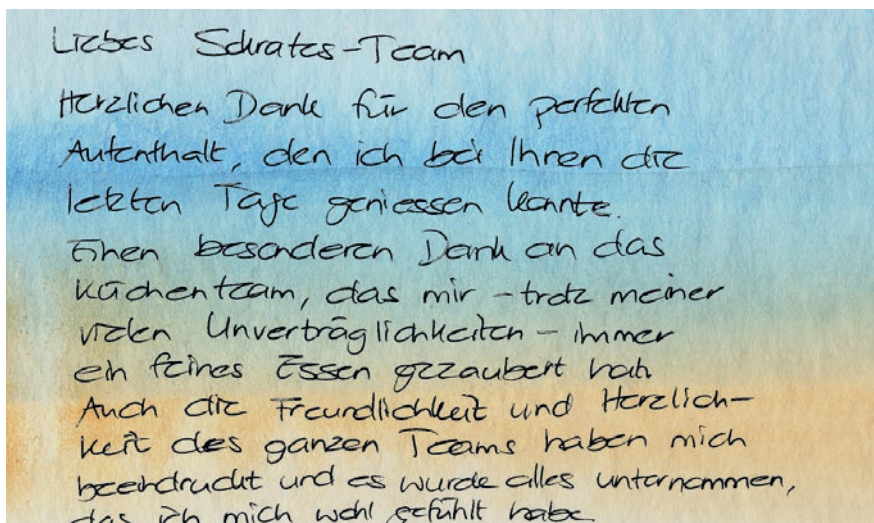 Liebes Sokrates-Team
Herzlichen Dank für den perfekten
Aufenthalt, den ich bei Ihnen die
letzten Tage geniessen konnte.
Einen besonderen Dank an das
Küchenteam, das mir - trotz meiner
vielen Unverträglichkeiten - immer
ein feines Essen gezaubert hat.
Auch die Freundlichkeit und Herzlich-
keit des ganzen Teams haben mich
beeindruckt und es wurde alles unternommen,
das ich mich wohl gefühlt habe.